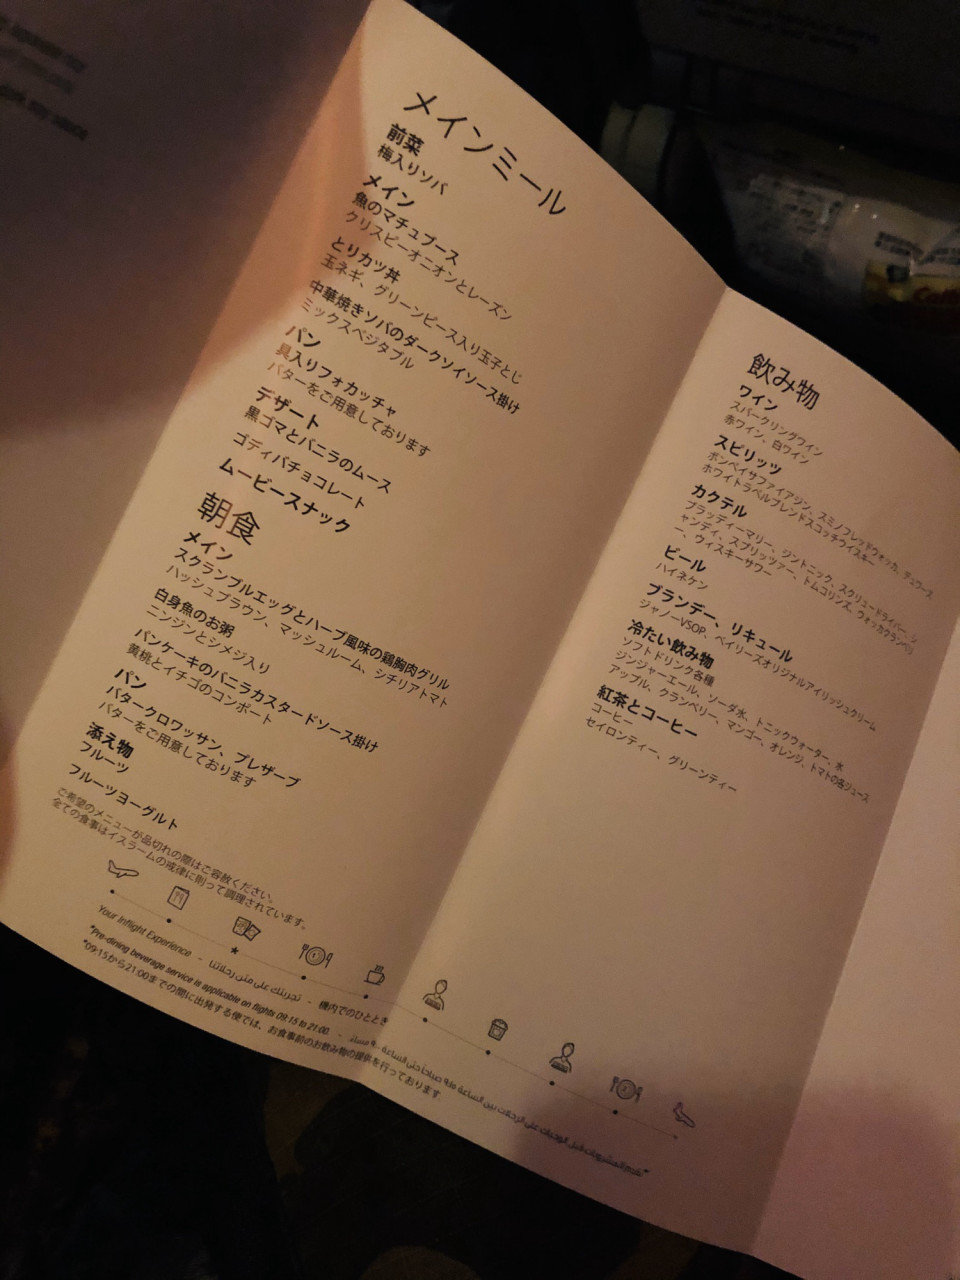 メインミール
前菜
梅入りソバ
メイン
魚のマチュブース
クリスピーオニオンとレーズン
とりカツ丼
玉ネギ、グリーンピース入り玉子とじ
中華焼きソバのダークソイソース掛け
ミックスベジタブル
パン
具入りフォカッチャ
バターをご用意しております
デザート
黒ゴマとバニラのムース
ゴディバチョコレート
ムービースナック
朝食
メイン
スクランブルエッグとハーブ風味の鶏胸肉グリル
ハッシュブラウン、マッシュルーム、シチリアトマト
白身魚のお粥
ニンジンとシメジ入り
パンケーキのバニラカスタードソース掛け
黄桃とイチゴのコンポート
パン
バタークロワッサン、プレザーブ
バターをご用意しております
添え物
フルーツ
フルーツヨーグルト
ご希望のメニューが品切れの際はご容赦ください。
全ての食事はイスラームの戒律に則って調理されています。
Your Inflight Experience - تجربتك على متن رحلاتنا - 機内でのひととき
*Pre-dining beverage service is applicable on flights 09:15 to 21:00
*09:15から21:00までの間に出発する便では、お食事前のお飲み物の提供を行っております
飲み物
ワイン
スパークリングワイン
赤ワイン、白ワイン
スピリッツ
ボンベイサファイアジン、スミノフレッドウォッカ、デュワーズ
ホワイトラベルブレンドスコッチウイスキー
カクテル
ブラッディーマリー、ジントニック、スクリュードライバー、シ
ャンディ、スプリッツァー、トムコリンズ、ウォッカクランベリ
ー、ウィスキーサワー
ビール
ハイネケン
ブランデー、リキュール
ジャノーVSOP、ベイリーズオリジナルアイリッシュクリーム
冷たい飲み物
ソフトドリンク各種
ジンジャーエール、ソーダ水、トニックウォーター、水
アップル、クランベリー、マンゴー、オレンジ、トマトの各ジュース
紅茶とコーヒー
コーヒー
セイロンティー、グリーンティー